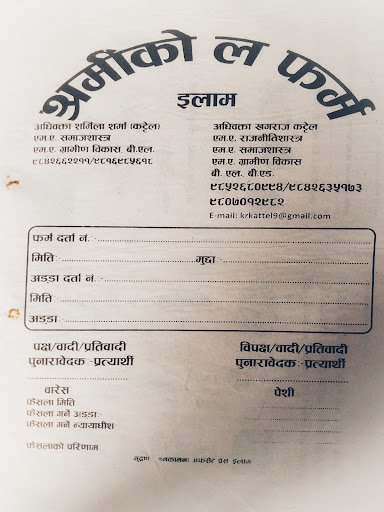 श्रमीको ल फर्म
इलाम
अधिवक्ता शर्मिला शर्मा (कट्टेल)
एम.ए. समाजशास्त्र
एम.ए. ग्रामीण विकास, बी.एल.
९८४२६६२२११/९८१६९८५६१८
अधिवक्ता खगराज कट्टेल
एम.ए. राजनीतिशास्त्र
एम.ए. समाजशास्त्र
एम.ए. ग्रामीण विकास
बी. एल. बी.एड.
९८५२६८०९९४/९८४२६३५१७३
९८०७०१२९८२
E-mail: krkattel9@gmail.com
फर्म दर्ता नं.:-
मिति:- मुद्दा:-
अड्डा दर्ता नं.:-
मिति:-
अड्डा:-
पक्ष/वादी/प्रतिवादी
पुनारावेदक:-प्रत्यार्थी
विपक्ष/वादी/प्रतिवादी
पुनारावेदक:-प्रत्यार्थी
वारेस
पेशी
फैसला मिति
फैसला गर्ने अड्डा:-
फैसला गर्ने न्यायाधीश
फैसलाको परिणाम
मुद्रण अफसेट प्रेस इलाम